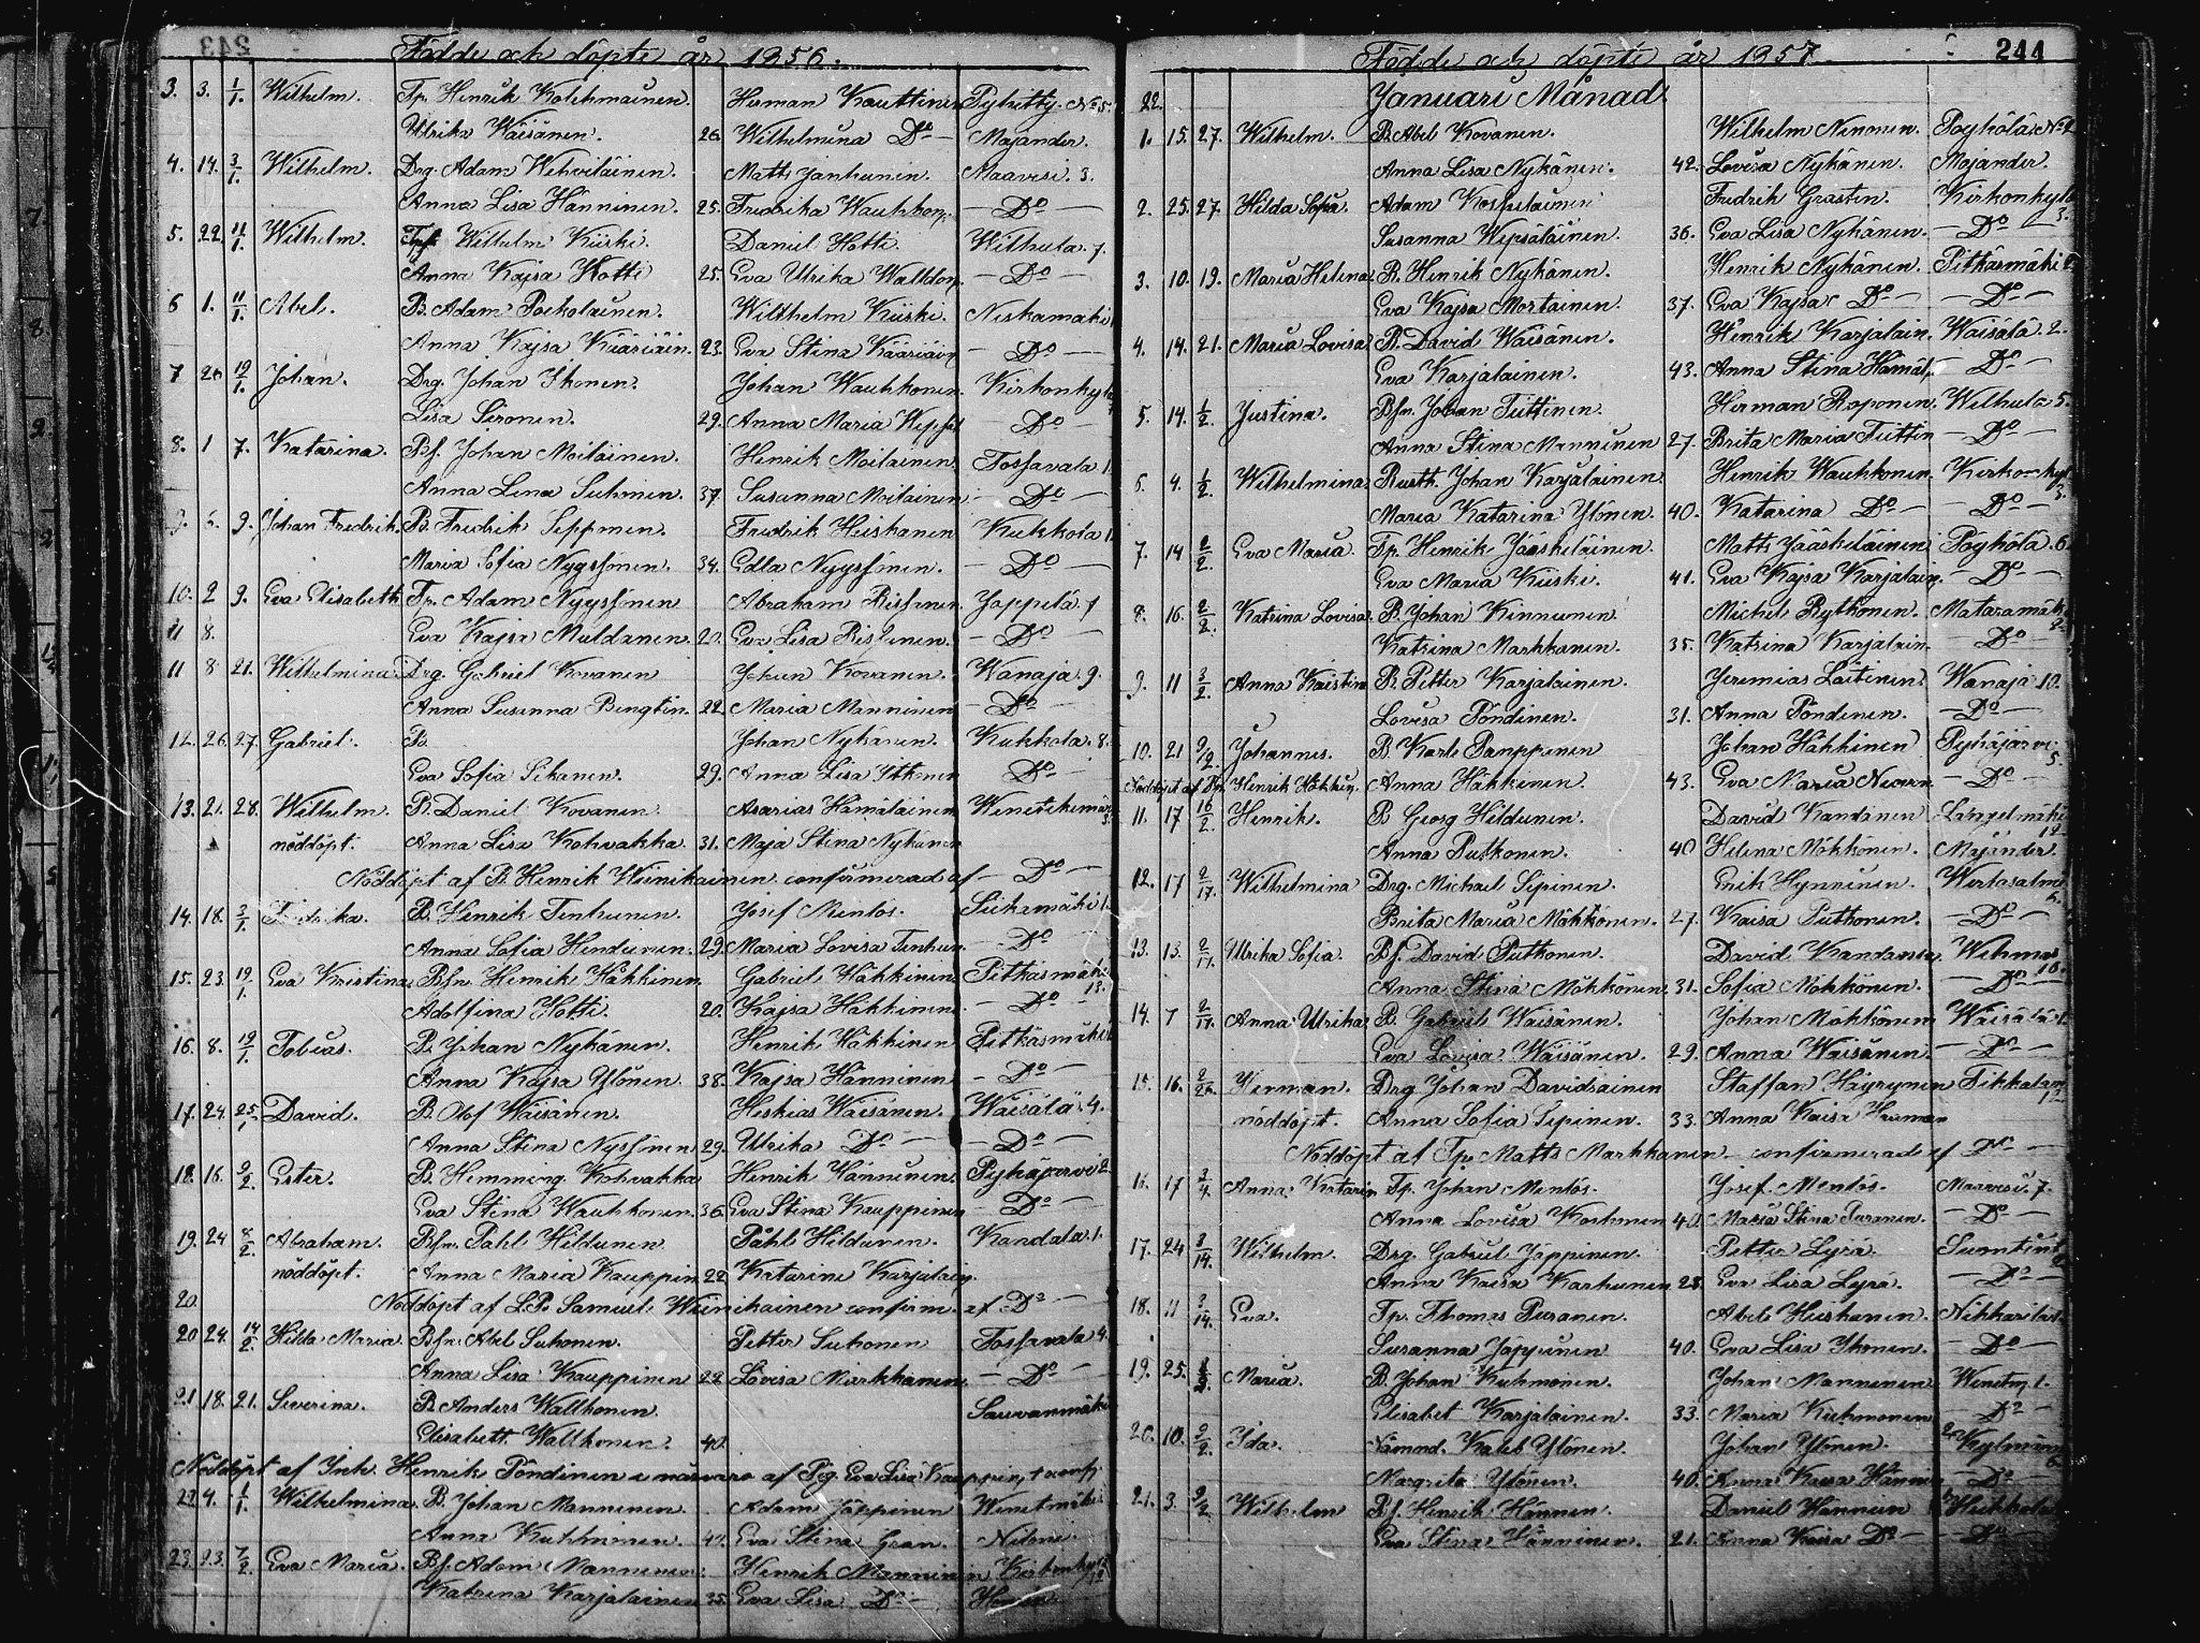 243
Födde och döpte år 1856.
3. 3. 1/1. Wilhelm. Tp. Henrik Kolehmainen. Herman Kauttinen Pyhitty. No 5.
Ulrika Wäisänen. 26. Wilhelmina Do Majander.
4. 14. 3/1. Wilhelm. Drg. Adam Wehviläinen. Matts Janhunin. Maavesi. 3.
Anna Lisa Hänninen. 25. Fredrika Wauhkon. Do
5. 22. 11/1. Wilhelm. Wilhelm Kiiski. Daniel Hotti. Wilhula. 7.
Anna Kajsa Hotti 25. Eva Ulrika Do
6 1. 11/1. Abel. B. Adam Poikolainen. Wilhelm Kiiski. Niskamäki
Anna Kajsa Kääriäin. 23. Eva Stina Kääriäin Do
7 20 19/1. Johan. Drg. Johan Ikonen. Johan Wauhkonen. Kirkonkylä
Lisa Sironen. 29. Anna Maria Weps. Do
8. 1 7. Katarina. Bf. Johan Moilainen. Henrik Moilainen. Tossavala 1.
Anna Lena Suhonen. 37. Susanna Moilainen Do
9. 9. Johan Fredrik. B. Fredrik Seppänen. Fredrik Heiskanen Kukkola 1.
Maria Sofia Nyyssönen. 34. Edla Nyyssönen. Do
10. 2 9. Eva Elisabeth Tp. Adam Nyyssönen Abraham Rissanen. Jäppilä. 7
11 8. Eva Kajsa Muldanen. 20. Eva Lisa Rissanen. Do
11 8 21. Wilhelmina Drg. Gabriel Kovanen Johan Kovanen. Wanaja. 9.
Anna Susanna Bengtin. 22. Maria Manninen Do
12. 26. 27. Gabriel. B. Johan Nykänen. Kukkola. 8.
Eva Sofia Sikanen. 29. Anna Lisa Itkonen Do
13. 21. 28. Wilhelm. B. Daniel Kovanen. Asarias Hämäläinen
nöddöpt. Anna Lisa Kohvakka. 31. Maja Stina Nykänen
Nöddöpt af B. Henrik Weinikainen. confirmerad af Do
14. 18. 3/1. Fredrika. B. Henrik Tenhunen. Josef Mentös. Siikamäki 1.
Anna Sofia 29. Maria Lovisa Tenhun. Do
15. 23. 19/1. Eva Kristina Bfn. Henrik Häkkinen. Gabriel Häkkinen Pitkäsmäki 13.
Adolfina Hotti. 20. Kajsa Häkkinen Do
16. 8. 19/1. Tobias. B. Johan Nykänen. Henrik Häkkinen Pitkäsmäki
Anna Kajsa Ylönen. 38. Kajsa Hänninen Do
17. 24. 25/1. David. B. Olof Wäisänen. Heskias Wäisänen. Wäisälä. 4.
Anna Stina Nyssönen 29. Ulrika Do Do
18. 16. 2/2. Ester. B. Hemming Kohvakka Henrik Hänninen. Pyhäjärvi 2.
Eva Stina Wauhkonen. 36. Eva Stina Kauppinen Do
19. 24 8/2. Abraham. Bfn. Påhl Hildunen Påhl Hildunen. Kandala. 1.
nöddöpt. Anna Maria Kauppin 22 Katarina Karjalain.
20. Nöddöpt af L.P. Samuel Weinikainen confirm. af Do
20 24. 14/2. Hilda Maria. Bfn. Abel Suhonen. Petter Suhonen Tossavala 4.
Anna Lisa Kauppinen 22 Lovisa Markkanen. Do
21 18. 21. Severina. B. Anders Walkonen. Sauvanmäki
Elisabeth Walkonen. 40.
Nöddöpt af Inh. Henrik Pöndinen i närvaro af Pig. Eva Lisa Kauppin,
22 4. 1/1. Wilhelmina. B. Johan Manninen. Adam Jäppinen Wenetmäki
Anna Kuhmonen. 42. Eva Stina Gran.
23. 23. 7/2. Eva Maria. Bf. Adam Manninen. Henrik Manninen
Katrina Karjalainen 35. Eva Lisa Do
244
Födde och döpte år 1857
22. Januari Månad.
1. 15. 27. Wilhelm. B. Abel Kovanen. Wilhelm Ninonen. Pöyhölä No 2
Anna Lisa Nykänen. 42. Lovisa Nykänen. Majander.
2. 25. 27. Hilda Sofia. Adam Koskelainen Fredrik Grastin. Kirkonkylä 3.
Susanna Wepsäläinen. 36. Eva Lisa Nykänen. Do
3. 10. 19. Maria Helena B. Henrik Nykänen. Henrik Nykänen. Pitkäsmäki
Eva Kajsa Mortainen. 37. Eva Kajsa Do Do
4. 14. 21. Maria Lovisa B. David Wäisänen. Henrik Karjalain. Wäisälä. 2.
Eva Karjalainen. 43. Anna Stina Hämäl. Do
5. 14. 1/2. Justina. Bfn. Johan Tiittinen. Herman Roponen. Wilhula 5.
Anna Stina Manninen 27. Brita Maria Tiittin Do
6. 4. 1/2. Wilhelmina Rusth. Johan Karjalainen Henrik Wauhkonen. Kirkonkyl
Maria Katarina Ylönen. 40. Katarina Do Do
7. 14 2/2. Eva Maria. Tp. Henrik Jääskeläinen. Matts Jääskeläinen Pöyhölä. 6.
Eva Maria Kiiski. 41. Eva Kajsa Karjalain. Do
8. 16. 2/2. Katrina Lovisa. B. Johan Kinnunen. Michel Rytkönen. Mataramäki 2.
Katrina Markkanen. 35. Katrina Karjalain. Do
9. 11 3/2. Anna Kristin B. Petter Karjalainen. Jeremias Laitinen. Wanaja 10.
Lovisa Pöndinen. 31. Anna Pöndinen. Do
10. 21 9/2. Johannes. B. Karl Pamppunen Johan Häkkinen Pyhäjärvi 5.
Nöddöpt af Henrik Häkkin. Anna Häkkinen. 43. Eva Maria Do
11. 17 16/2. Henrik. B. Georg Hildunen. David Kandanen Längelmäki 12
Anna Putkonen. 40 Helena Mökkönen. Majander.
12. 17 2/17. Wilhelmina Drg. Michael Sipinen. Erik Hynninen. Wirtasalmi
Brita Maria Mökkönen. 27. Kaisa Putkonen. Do
13. 13. 2/17. Ulrika Sofia. Bf. David Putkonen. David Kandanen. Wehmas 10.
Anna Stina Mökkönen. 31. Sofia Mökkönen. Do
14. 7 2/17. Anna Ulrika B. Gabriel Wäisänen. Johan Mökkönen Wäisälä 1.
Eva Lovisa Wäisänen. 29. Anna Wäisänen. Do
15. 16. 2/26. Herman. Drg Johan Davidsainen Staffan Häyrynen Tikkalam 12
nöddöpt. Anna Sofia Sipinen. 33. Anna Kaisa
Nöddöpt af Tp. Matts Markkanen. confirmerad af Do
16. 17 3/4. Anna Katarin Tp. Johan Mentös. Josef Mentös. Maavesi. 7.
Anna Lovisa Korhonen 40. Maria Stina Puranen. Do
17. 24 3/14. Wilhelm. Drg. Gabriel Jäppinen. Petter Lyra. Suontin
Anna Kaisa Karhunen 28. Eva Lisa Lyra. Do
18. 11 3/14. Eva. Tp. Thomas Puranen. Abel Heiskanen. Nikkarila
Susanna Jäppinen 40. Eva Lisa Ikonen. Do
19. 25. Maria. B. Johan Kuhmonen. Johan Manninen Wenetm 1.
Elisabet Karjalainen. 33. Maria Kuhmonen Do
20. 10. 2/2. Ida. Nämnd. Kaleb Ylönen. Johan Ylönen.
Margreta Ylönen. 40. Anna Kaisa Hännin Do
21. 3. 2/2 Wilhelm Bf. Henrik Hännen. Daniel Hannun
Eva Stina Hänninen. 21. Anna Kaisa Do Do